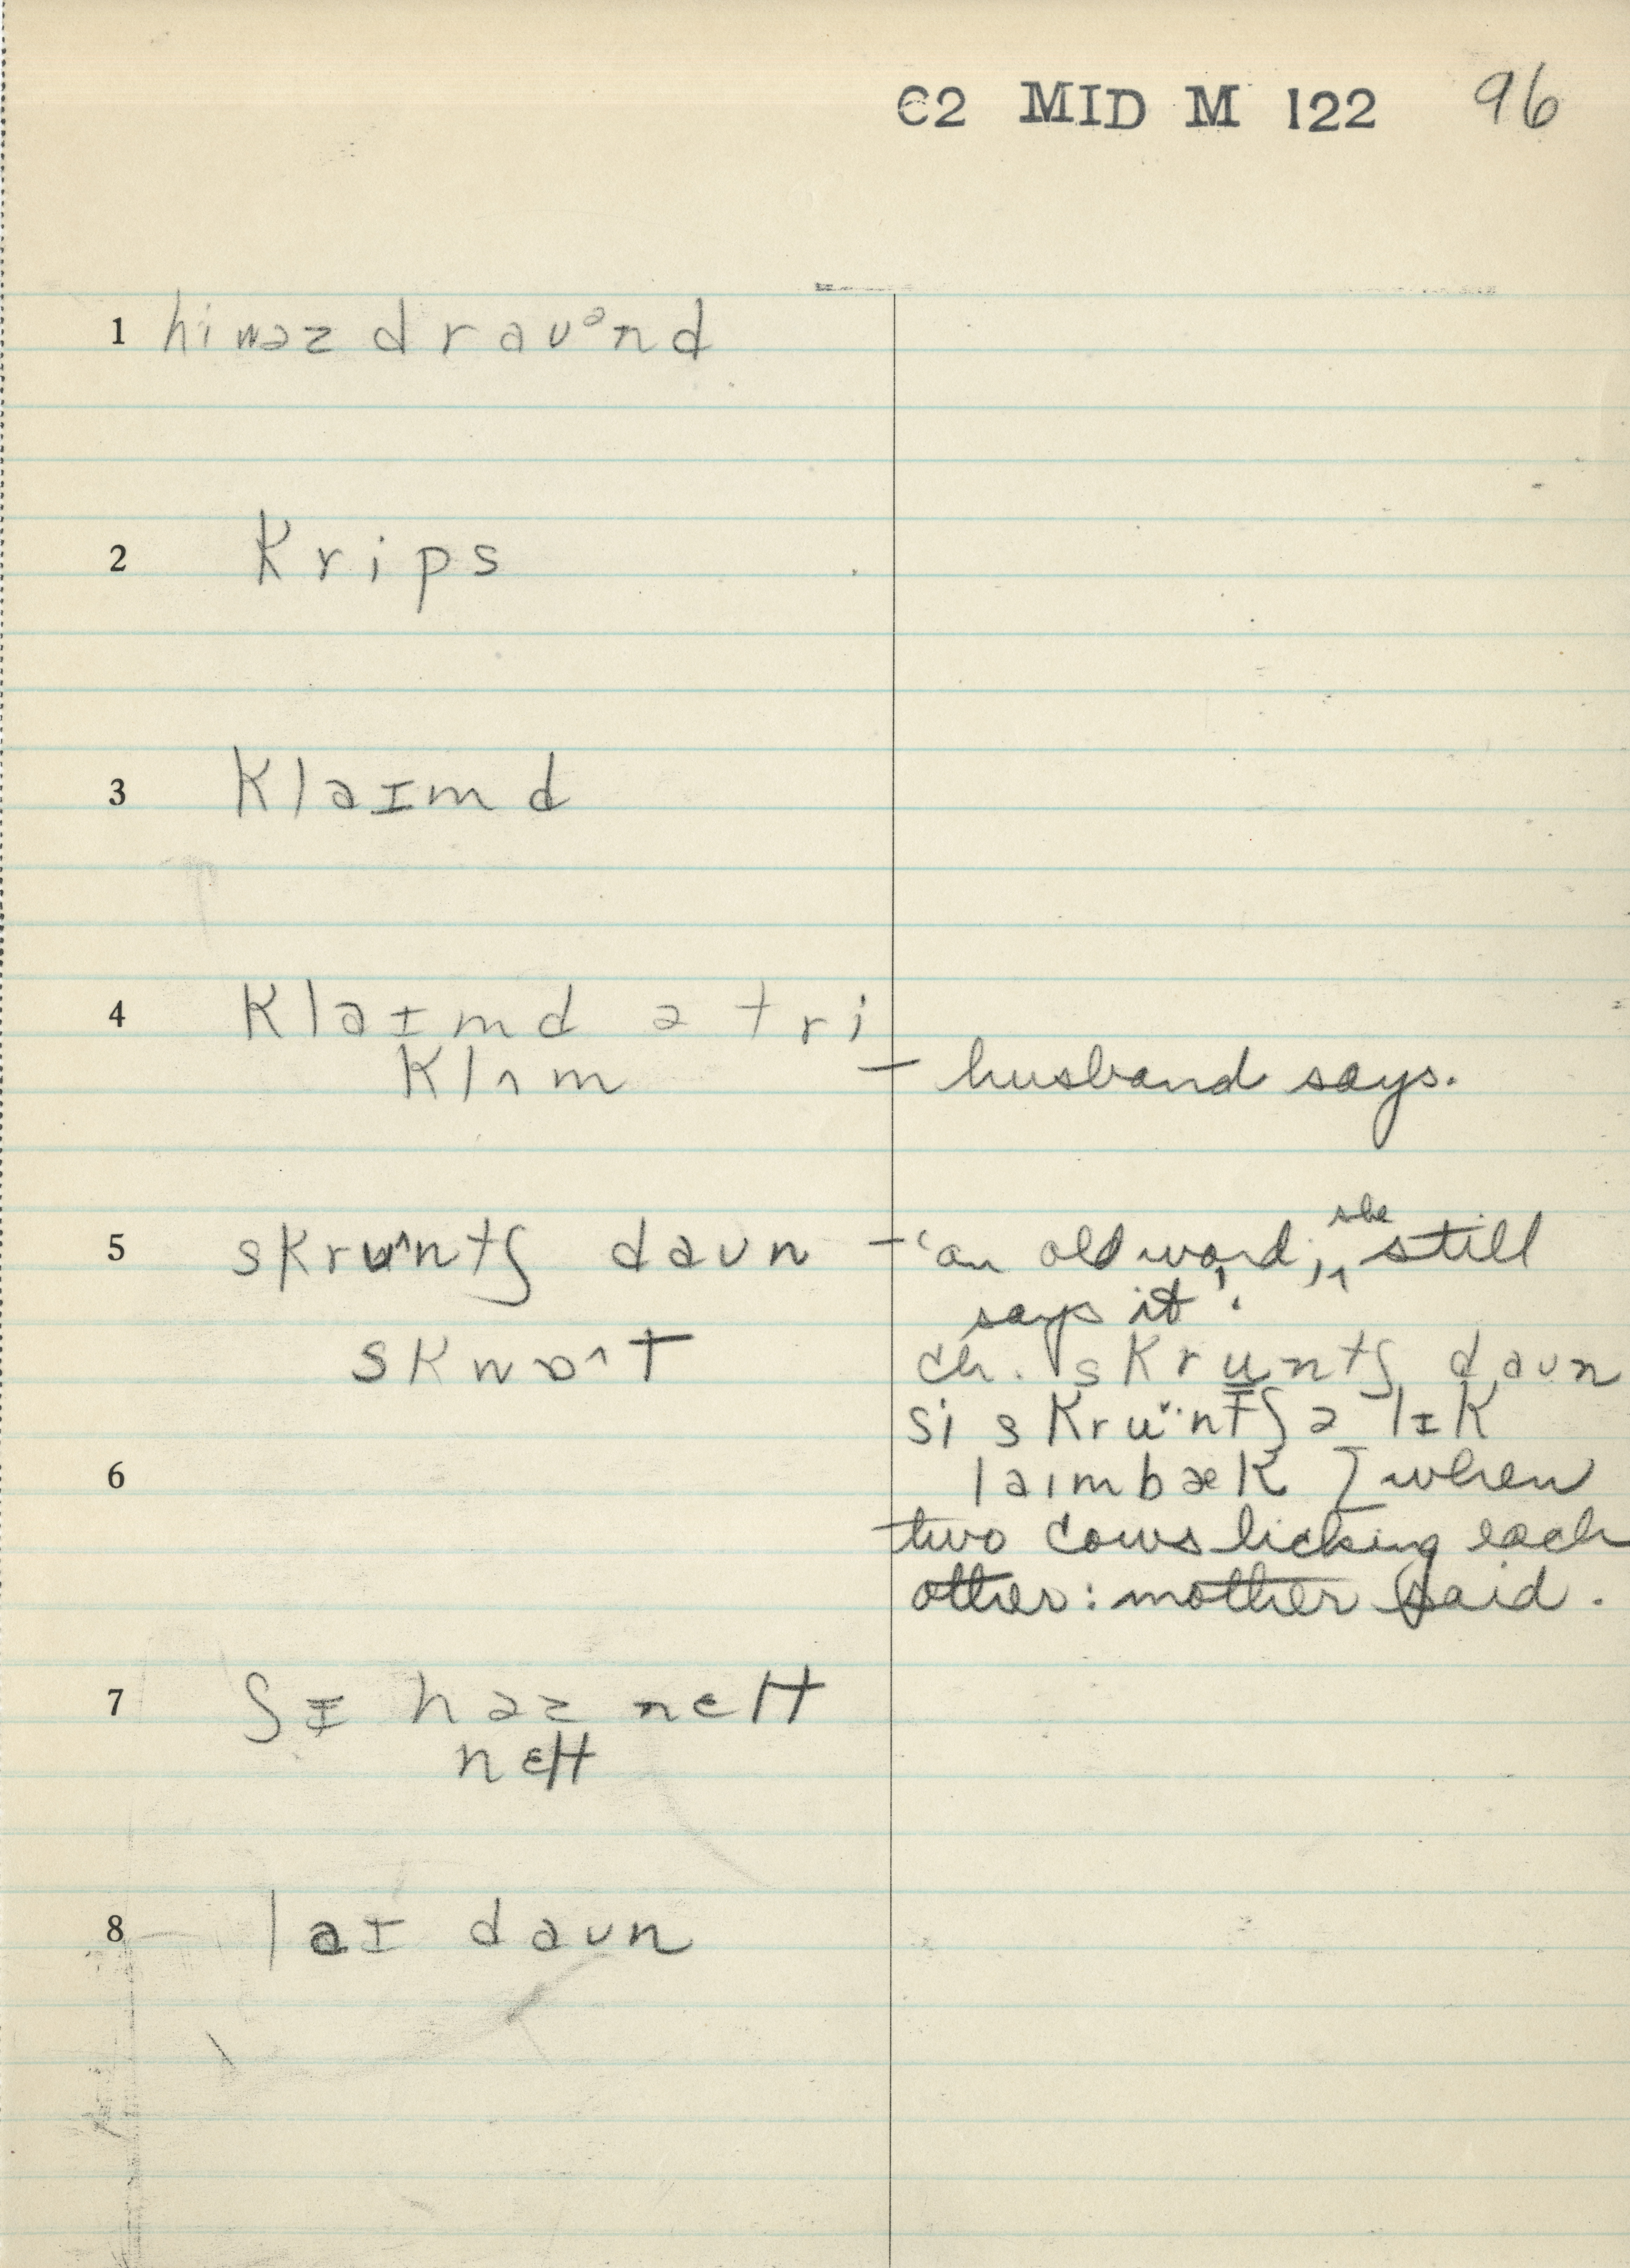 C2 MID M 122 96
1 hiwəz draʊᵊnd
2 krips
3 klaɪmd
4 klaɪmd ə tri
klʌm — husband says.
5 skruˆntʃ daʊn — 'an old word', she still
says it'.
skwɒˆt ch. skruntʃ daʊn
si skruntʃ ə lɪk
6 laɪmbæk] when
two cows licking each
other: mother said.
7 ʃɪ həz nɛlt
nɛlt
8 laɪ daʊn